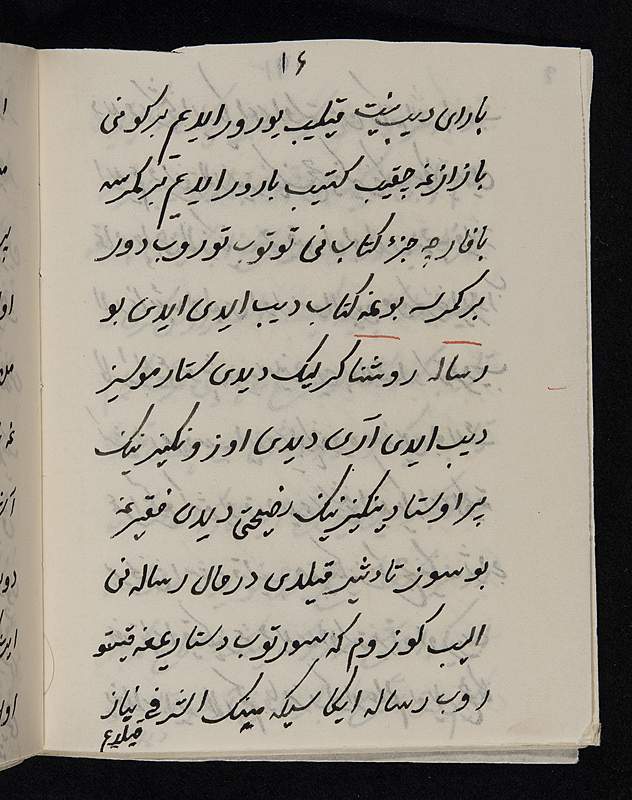 ۱۶
بارای دیب نیت قیلیب یورور ایدیم بر کونی
بازارغه چقیب کتیب بارور ایدیم بر کمرسه
یافارچه جزء کتاب نی توتوب توروب دور
بر کمرسه بوغه کتاب دیب ایدی ایدی بو
رساله روشناکرلیک دیدی ستارموسیز
دیب ایدی آری دیدی اوزونکیزنیک
پر اوستادینکیزنیک نصیحتی دیدی فقیرغه
بو سوز تادثیر قیلدی در حال رساله نی
الیب کوزوم که سورتوب دستاریمغه قیستو
روب رساله ایکا سیکه مینک اشرفی نیاز
قیلدیم